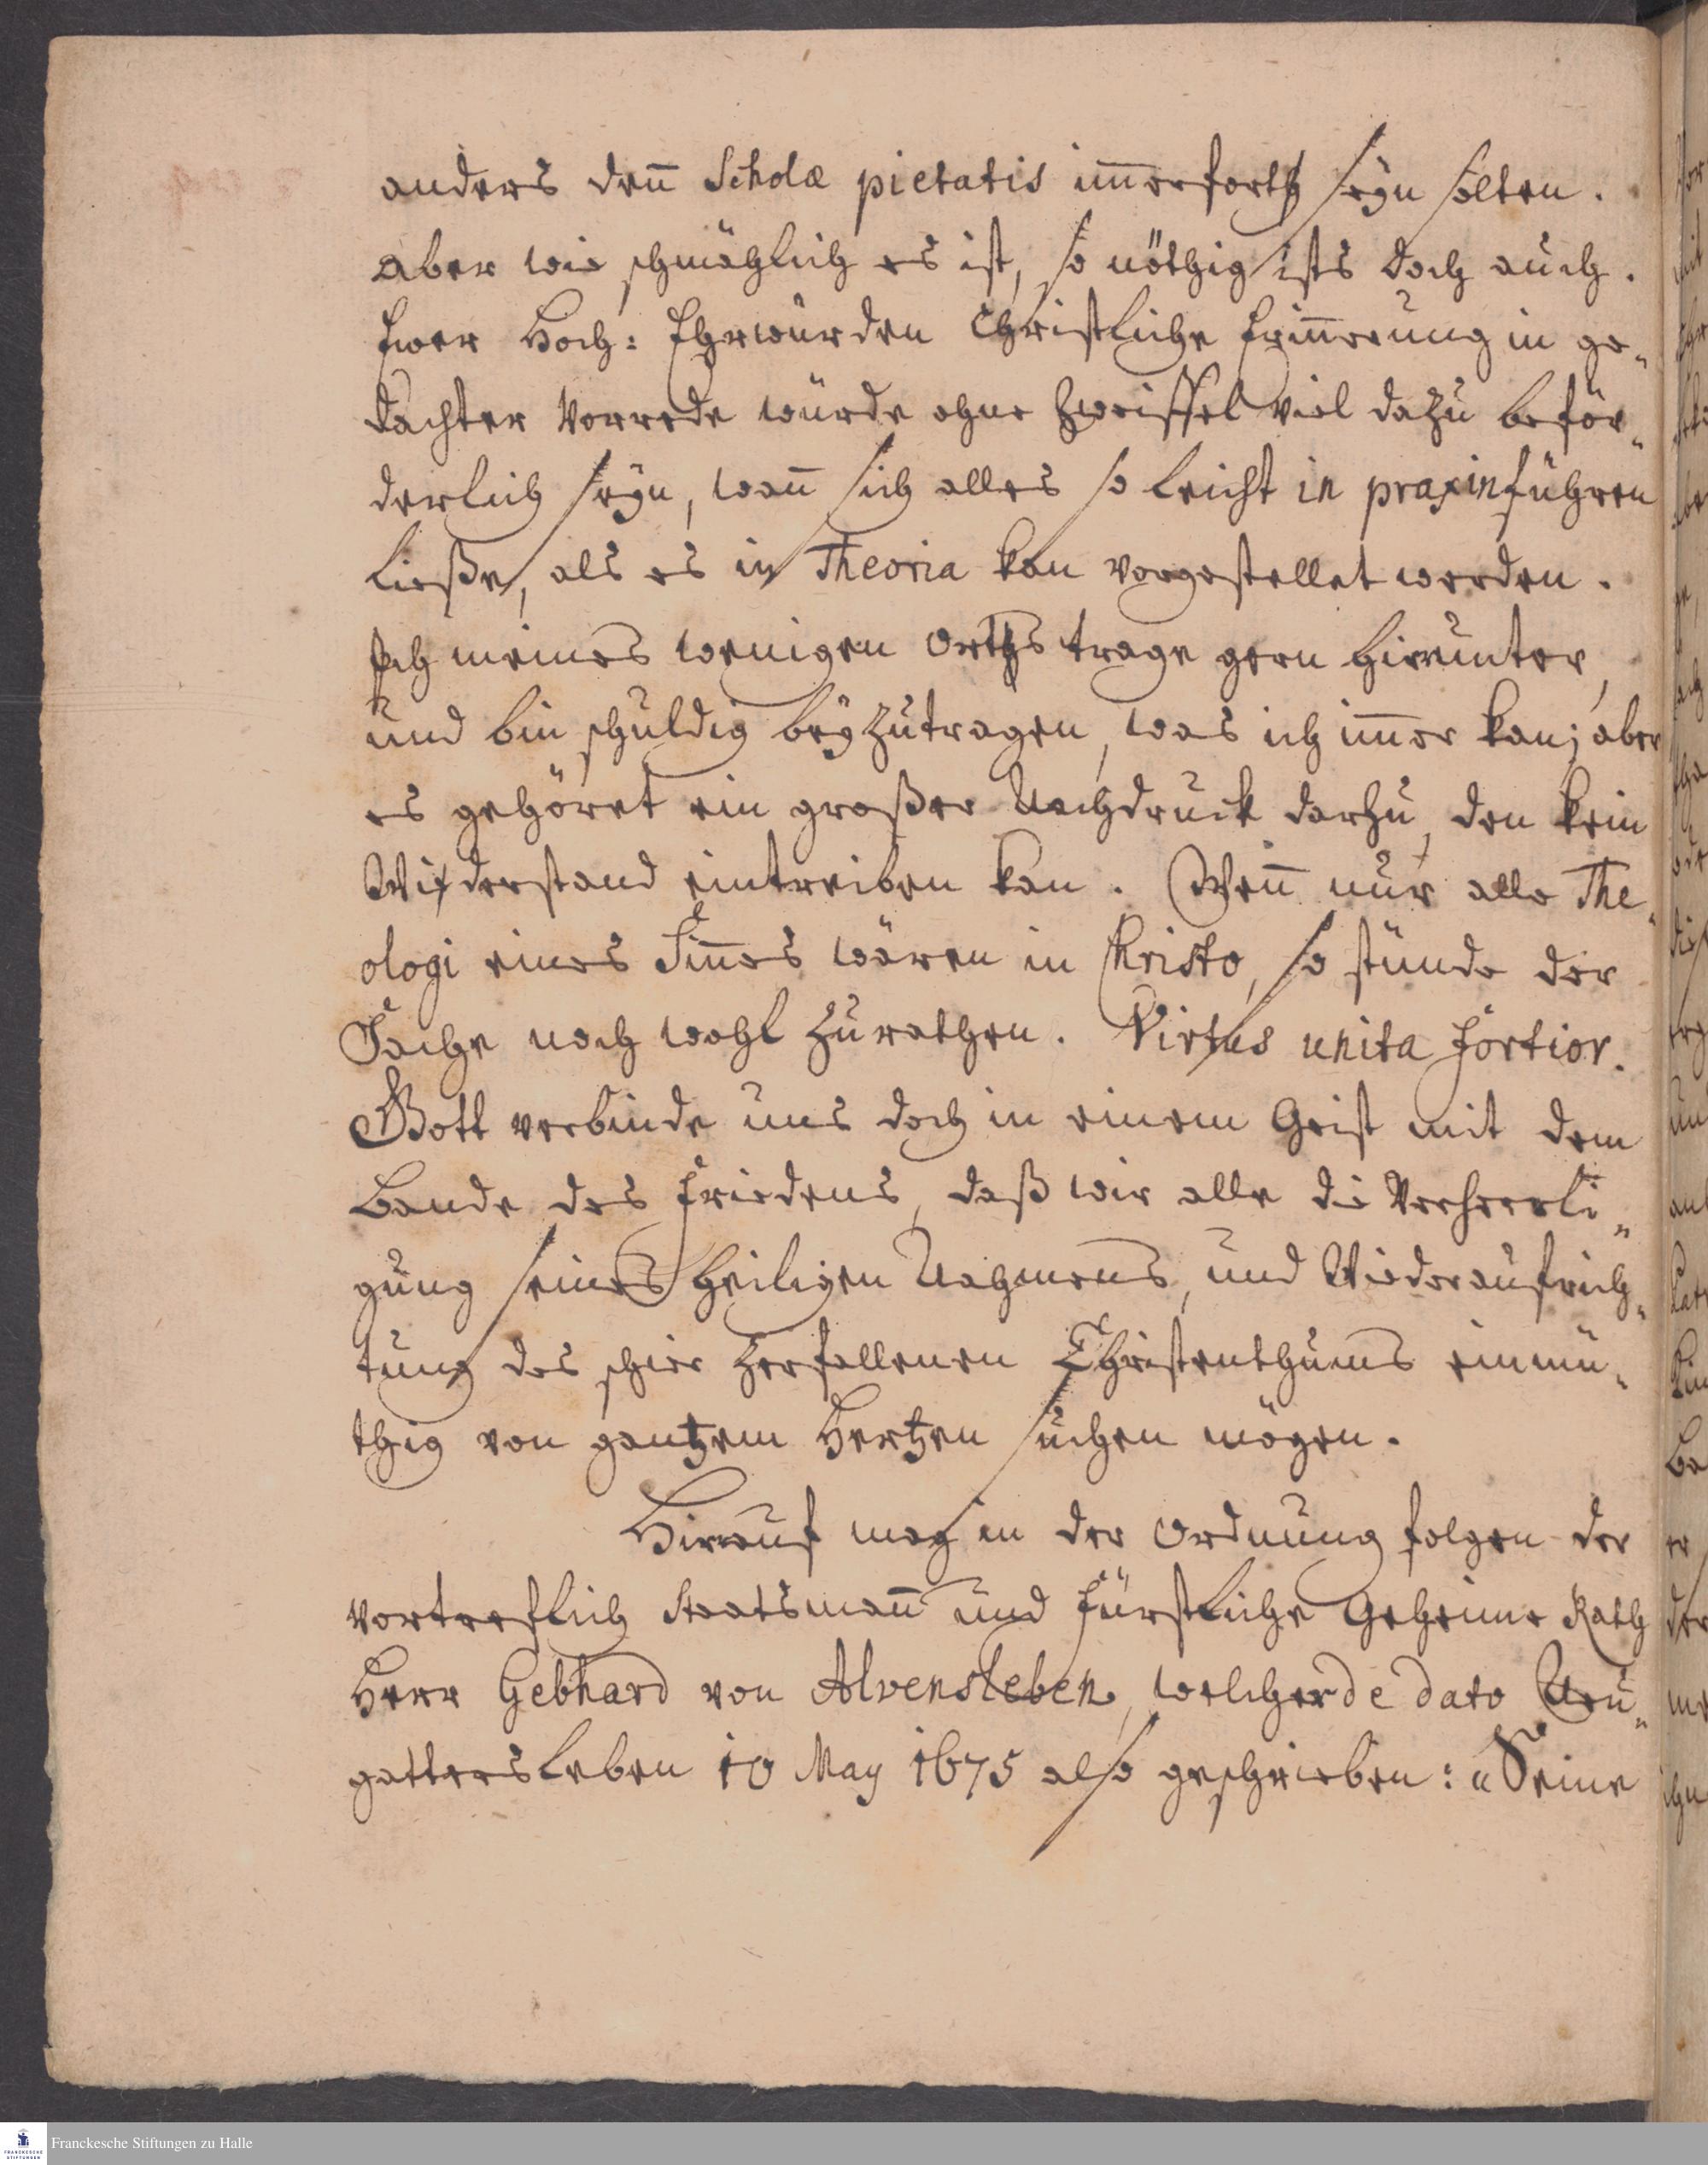 anders deñ Scholæ pietatis im̃erforth seÿn solten.
Aber wie schmählich es ist, so nöthig ists doch auch.
Ewer Hoch: Ehrwürden Christliche Erinnerung in ge„
dachter Vorrede würde ohne Zweiffel viel dazu beför„
derlich seÿn, wañ sich alles so leicht in praxin führen
ließe, als es in Theoria kan vorgestellet werden.
Ich meines wenigen Orths trage gern hierunter,
und bin schuldig beÿzutragen, was ich im̃er kan; aber
es gehöret ein großer Nachdruck darzu, den kein
Wiederstand eintreiben kan. Weñ nur alle The„
ologi eines Siñes wären in Christo, so stünde der
Sache noch wohl zurathen. Virtus unita fortior.
Gott verbinde uns doch in einem Geist mit dem
Bande des Friedens, daß wir alle die Verherrli„
gung seines heiligen Nahmens, und Wiederaufrich„
tung des schier zerfallenen Christenthums einmü„
thig von gantzem Hertzen suchen mögen.
Hierauf mag in der Ordnung folgen der
vortreflich Staatsmañ und Fürstliche Geheime Rath
Herr Gebhard von Alvensleben, welcher de dato Neu„
gattersleben 10 May 1675 also geschrieben: „Seine
Franckesche Stiftungen zu Halle